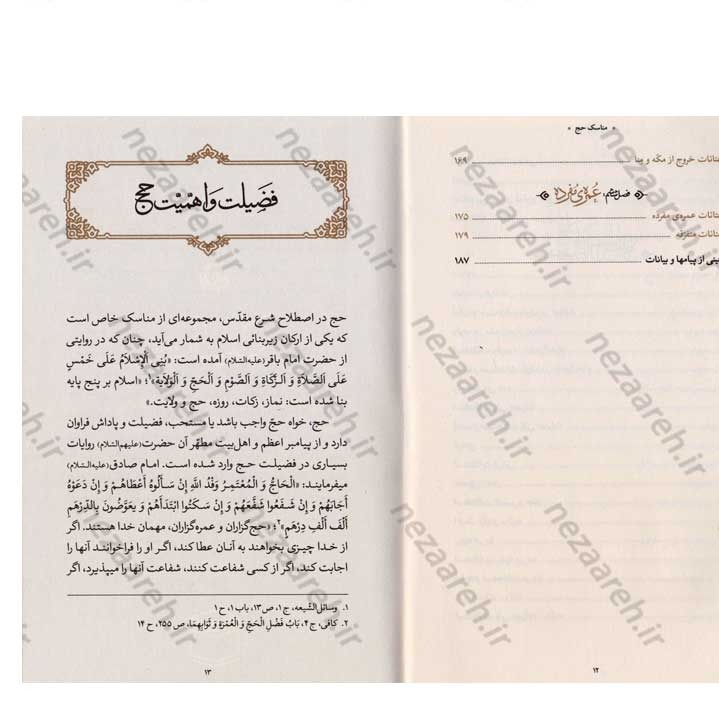 * مناسک حج *
خروج از مکّه و مِنا ۱۶۹
عُمره‌ی مُفرده
عمره‌ی مفرده ۱۷۵
متفرّقه ۱۷۹
از پیامها و بیانات ۱۸۷
۱۲
فضیلت و اهمّیّت حج
حج در اصطلاح شرع مقدّس، مجموعه‌ای از مناسک خاص است
که یکی از ارکان زیربنائی اسلام به شمار می‌آید، چنان که در روایتی
از حضرت امام باقر (علیه‌السّلام) آمده است: «بُنِیَ الْإِسْلَامُ عَلَی خَمْسٍ
عَلَی الصَّلَاةِ وَ الزَّکَاةِ وَ الصَّوْمِ وَ الْحَجِّ وَ الْوَلَایَة»۱؛ «اسلام بر پنج پایه
بنا شده است: نماز، زکات، روزه، حج و ولایت.»
حج، خواه حجّ واجب باشد یا مستحب، فضیلت و پاداش فراوان
دارد و از پیامبر اعظم و اهل‌بیت مطهّر آن حضرت (علیهم‌السّلام) روایات
بسیاری در فضیلت حج وارد شده است. امام صادق (علیه‌السّلام)
میفرمایند: «الْحَاجُّ وَ الْمُعْتَمِرُ وَفْدُ اللَّهِ إِنْ سَأَلُوهُ أَعْطَاهُمْ وَ إِنْ دَعَوْهُ
أَجَابَهُمْ وَ إِنْ شَفَعُوا شَفَّعَهُمْ وَ إِنْ سَکَتُوا ابْتَدَأَهُمْ وَ یُعَوَّضُونَ بِالدِّرْهَمِ
أَلْفَ أَلْفِ دِرْهَمٍ»۲؛ «حج‌گزاران و عمره‌گزاران، مهمان خدا هستند. اگر
از خدا چیزی بخواهند به آنان عطا کند، اگر او را فراخوانند آنها را
اجابت کند، اگر از کسی شفاعت کنند، شفاعت آنها را میپذیرد، اگر
۱. وسائل‌الشّیعه، ج ۱، ص ۱۳، باب ۱، ح ۱
۲. کافی، ج ۴، بَابُ فَضْلِ الْحَجِّ وَ الْعُمْرَةِ وَ ثَوَابِهِمَا، ص ۲۵۵، ح ۱۴
۱۳
nezaareh.ir
nezaareh.ir
nezaareh.ir
nezaareh.ir
nezaareh.ir
nezaareh.ir
nezaareh.ir
nezaareh.ir